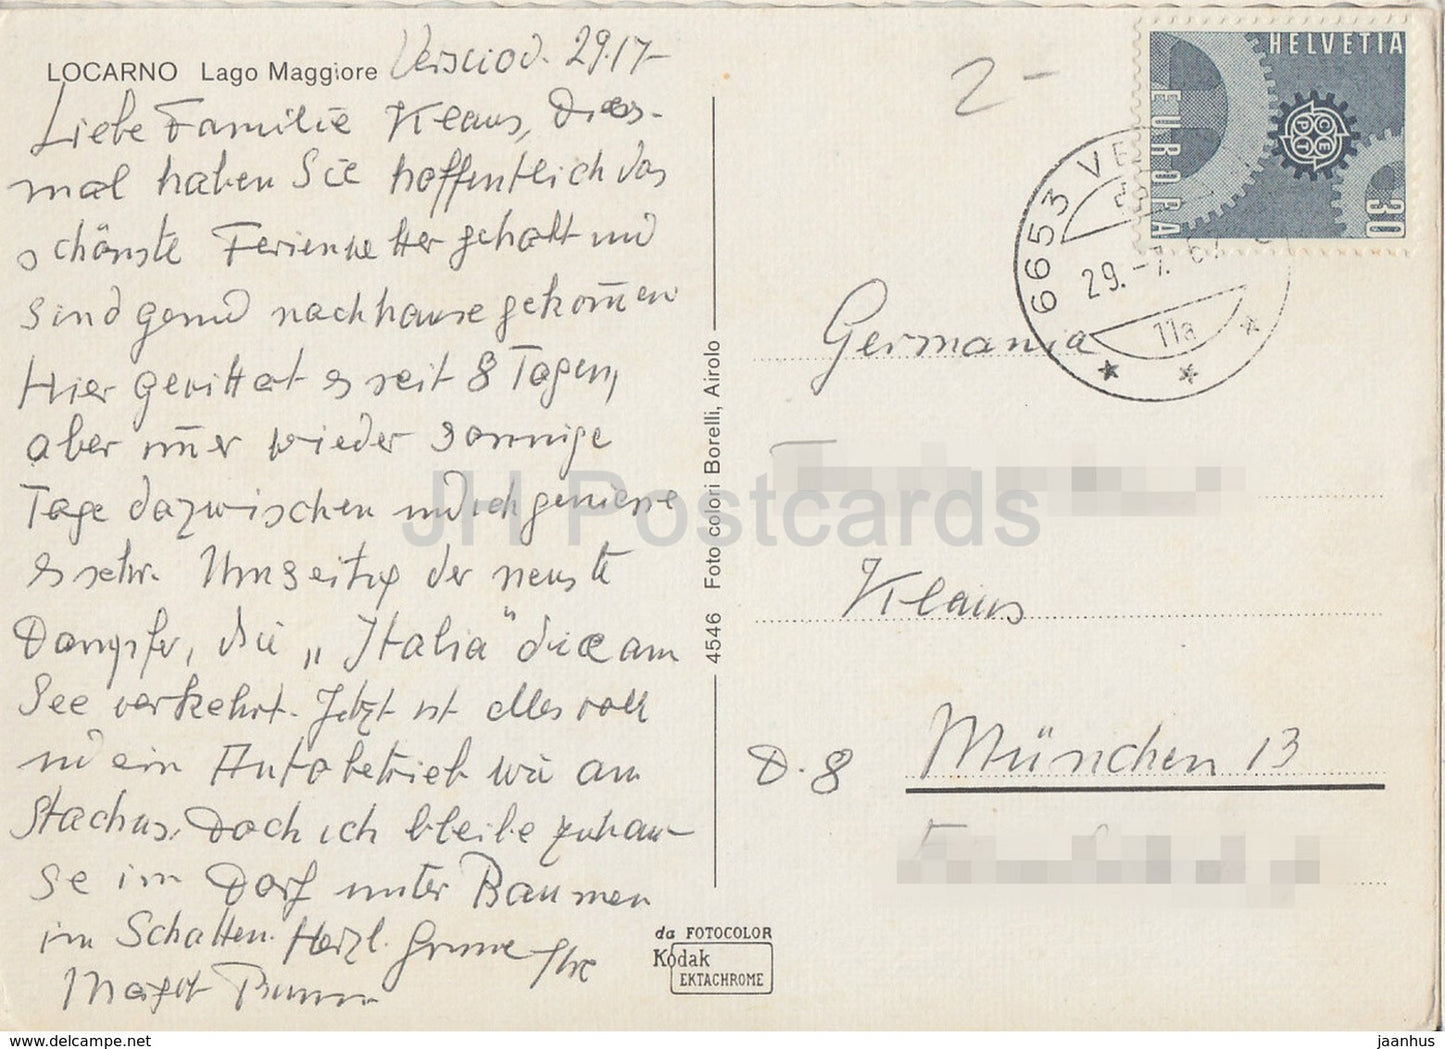 LOCARNO Lago Maggiore
Versciod. 29.17-
Liebe Familie Klaus, Dies-
mal haben Sie hoffentlich das
schönste Ferienwetter gehabt und
sind gesund nachhause gekom̄en
Hier gewittert es seit 8 Tagen,
aber im̄er wieder sonnige
Tage dazwischen und ich geniesse
es sehr. Umseitig der neuste
Dampfer, die „Italia" die am
See verkehrt. Jetzt ist alles voll
und ein Autobetrieb wie am
Stachus. Doch ich bleibe zuhau-
se im Dorf unter Baumen
im Schatten. Herzl. Grüsse Ihre
Margot
4546 Foto colori Borelli, Airolo
da FOTOCOLOR
Kodak
EKTACHROME
2-
HELVETIA
EUROPA
CEPT
30
6653 VE
29.-7.67
11a
Germania
Klaus
D. 8 München 13
JH Postcards
www.delcampe.net
jaanhus